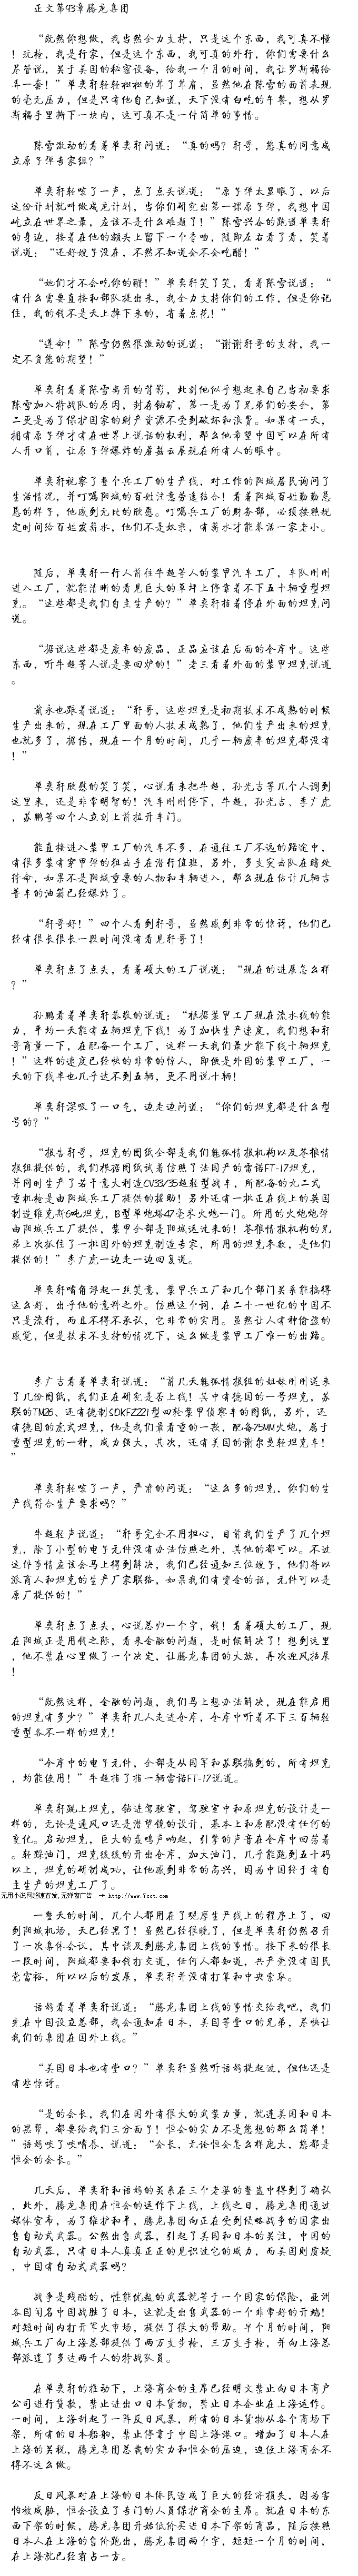 正文第93章腾龙集团
“既然你想做，我当然全力支持，只是这个东西，我可真不懂
！玩枪，我是行家，但是这个东西，我可真的外行，你们需要什么
尽管说，关于美国的秘密设备，给我一个月的时间，我让罗斯福给
弄一套！”单奕轩轻轻松松的耸了耸肩，虽然他在陈雪的面前表现
的毫无压力，但是只有他自己知道，天下没有白吃的午餐，想从罗
斯福手里撕下一块肉，这可真不是一件简单的事情。
陈雪激动的看着单奕轩问道：“真的吗？轩哥，您真的同意成
立原子弹专家组？”
单奕轩轻咳了一声，点了点头说道：“原子弹太显眼了，以后
这份计划就叫做成龙计划，当你们研究出第一颗原子弹，我想中国
屹立在世界之巅，应该不是什么难题了！”陈雪兴奋的跑道单奕轩
的身边，接着在他的额头上留下一个香吻，随即左右看了看，笑着
说道：“还好嫂子没在，不然不知道会不会吃醋！”
“她们才不会吃你的醋！”单奕轩笑了笑，看着陈雪说道：“
有什么需要直接和部队提出来，我全力支持你们的工作，但是你记
住，我的钱不是天上掉下来的，省着点花！”
“遵命！”陈雪仍然很激动的说道：“谢谢轩哥的支持，我一
定不负您的期望！”
单奕轩看着陈雪离开的背影，此刻他似乎想起来自己当初要求
陈雪加入特战队的原因，封存铀矿，第一是为了兄弟们的安全，第
二更是为了保护国家的财产资源不受到破坏和浪费。如果有一天，
拥有原子弹才有在世界上说话的权利，那么他希望中国可以在所有
人开口前，让原子弹爆炸的蘑菇云展现在所有人的眼中。
单奕轩视察了整个兵工厂的生产线，对工作的阳城居民询问了
生活情况，并叮嘱阳城的百姓注意劳逸结合！看着阳城百姓勤勤恳
恳的样子，他感到无比的欣慰。叮嘱兵工厂的财务部，必须按照规
定时间给百姓发薪水，他们不是奴隶，有薪水才能养活一家老小。
随后，单奕轩一行人前往牛超等人的装甲汽车工厂，车队刚刚
进入工厂，就能清晰的看见巨大的草坪上停靠着不下五十辆重型坦
克。“这些都是我们自主生产的？”单奕轩指着停在外面的坦克问
道。
“据说这些都是废弃的废品，正品应该在后面的仓库中。这些
东西，听牛超等人说是要回炉的！”老三看着外面的装甲坦克说道
。
翁永也跟着说道：“轩哥，这些坦克是初期技术不成熟的时候
生产出来的，现在工厂里面的人技术成熟了，他们生产出来的坦克
也就多了，据传，现在一个月的时间，几乎一辆废弃的坦克都没有
！”
单奕轩欣慰的笑了笑，心说看来把牛超，孙光吉等几个人调到
这里来，还是非常明智的！汽车刚刚停下，牛超，孙光吉、李广虎
，苏鹏等四个人立刻上前拉开车门。
能直接进入装甲工厂的汽车不多，在通往工厂不远的路途中，
有很多装有穿甲弹的狙击手在潜行值班，另外，多支突击队在暗处
待命，如果不是阳城重要的人物和车辆进入，那么现在估计几辆吉
普车的油箱已经爆炸了。
“轩哥好！”四个人看到轩哥，虽然感到非常的惊讶，他们已
经有很长很长一段时间没有看见轩哥了！
单奕轩点了点头，看着硕大的工厂说道：“现在的进展怎么样
？”
孙鹏看着单奕轩恭敬的说道：“根据装甲工厂现在流水线的能
力，平均一天能有五辆坦克下线！为了加快生产速度，我们想和轩
哥商量一下，在配备一个工厂，这样一天我们最少能下线十辆坦克
！”这样的速度已经快的非常的惊人，即便是外国的装甲工厂，一
天的下线车也几乎达不到五辆，更不用说十辆！
单奕轩深吸了一口气，边走边问道：“你们的坦克都是什么型
号的？”
“报告轩哥，坦克的图纸全部是我们魅狐情报机构以及苍狼情
报组提供的，我们根据图纸试着仿照了法国产的雷诺FT-17坦克，
并同时生产了若干意大利造CV33/35超轻型战车，所配备的九二式
重机枪是由阳城兵工厂提供的援助！另外还有一批正在线上的英国
制造维克斯6吨坦克，B型单炮塔47毫米火炮一门。所用的火炮炮弹
由阳城兵工厂提供，装甲全部是阳城运过来的！苍狼情报机构的兄
弟上次抓住了一批国外的坦克制造专家，所用的坦克参数，是他们
提供的！”李广虎一边走一边回复道。
单奕轩嘴角浮起一丝笑意，装甲兵工厂和几个部门关系能搞得
这么好，出乎他的意料之外。仿照这个词，在二十一世纪的中国不
只是流行，而且不得不承认，它非常的实用。虽然让人有种偷盗的
感觉，但是技术不支持的情况下，这么做是装甲工厂唯一的出路。
李广吉看着单奕轩说道：“前几天魅狐情报组的姐妹刚刚送来
了几份图纸，我们正在研究是否上线！其中有德国的一号坦克，苏
联的TM26、还有德制S.DKFZ221型四轮装甲侦察车的图纸，另外，还
有德国的虎式坦克，他是我们最看重的一款，配备75MM火炮，属于
重型坦克的一种，威力强大，其次，还有美国的谢尔曼轻坦克车！
”
单奕轩轻咳了一声，严肃的问道：“这么多的坦克，你们的生
产线符合生产要求吗？”
牛超轻声说道：“轩哥完全不用担心，目前我们生产了几个坦
克，除了小型的电子元件没有办法仿照之外，其他的都可以。不过
这件事情应该会马上得到解决，我们已经通知三位嫂子，他们将以
派商人和坦克的生产厂家联络，如果我们有资金的话，元件可以是
原厂提供的！”
单奕轩点了点头，心说总归一个字，钱！看着硕大的工厂，现
在阳城正是用钱之际，看来金融的问题，是时候解决了！想到这里
，他不禁在心里做了一个决定，让腾龙集团的大旗，再次迎风招展
！
“既然这样，金融的问题，我们马上想办法解决，现在能启用
的坦克有多少？”单奕轩几人走进仓库，仓库中听着不下三百辆轻
重型各不一样的坦克！
“仓库中的电子元件，全部是从国军和苏联搞到的，所有坦克
，均能使用！”牛超指了指一辆雷诺FT-17说道。
单奕轩跳上坦克，钻进驾驶室，驾驶室中和原坦克的设计是一
样的，无论是通风口还是潜望镜的设计，基本上和原配没有任何的
变化。启动坦克，巨大的轰鸣声响起，引擎的声音在仓库中回荡着
。轻踩油门，坦克缓缓的开出仓库，加大油门，几乎能跑到五十码
以上，坦克的研制成功，让他感到非常的高兴，因为中国终于有自
主生产的坦克工厂了。
无用小说网超速首发,无弹窗广告 → http://www.7cct.com
一整天的时间，几个人都用在了观摩生产线上的程序上了，回
到阳城机场，天已经黑了！虽然已经很晚了，但是单奕轩仍然召开
了一次集体会议，其中谈及到腾龙集团上线的事情。接下来的很长
一段时间，阳城都要和钱打交道，任何人都知道，共产党没有国民
党富裕，所以以后的发展，单奕轩并没有打算和中央索取。
语嫣看着单奕轩说道：“腾龙集团上线的事情交给我吧，我们
先在中国设立总部，我会通知在日本，美国等堂口的兄弟，尽快让
我们的集团在国外上线。”
“美国日本也有堂口？”单奕轩虽然听语嫣提起过，但他还是
有些惊讶。
“是的会长，我们在国外有很大的武装力量，就连美国和日本
的黑帮，都要给我们三分面子！恒会的实力不是您想的那么简单！
”语嫣咳了咳嗓音，说道：“会长，无论恒会怎么样庞大，您都是
恒会的会长。”
几天后，单奕轩和语嫣的关系在三个老婆的整蛊中得到了确认
，此外，腾龙集团在恒会的运作下上线，上线之日，腾龙集团通过
媒体宣布，为了维护和平，腾龙集团向正在受到侵略战争的国家出
售自动式武器。公然出售武器，引起了美国和日本的关注，中国的
自动武器，只有日本人真真正正的见识过它的威力，而美国则质疑
，中国有自动式武器吗？
战争是残酷的，性能优越的武器就等于一个国家的保险，亚洲
各国闻名中国战胜了日本，这就是出售武器的一个非常好的开端！
对短时间内打开军火市场，提供了很大的帮助。半个月的时间，阳
城兵工厂向上海总部提供了两万支步枪，三万支手枪，并向上海总
部派遣了多达两千人的特战队员。
在单奕轩的推动下，上海商会的主席已经明文禁止向日本商户
公司进行贷款，禁止进出口日本货物，禁止日本企业在上海运作。
一时间，上海刮起了一阵反日风暴，所有的日本货物从各个商场下
架，所有的日本船舶，禁止停靠于中国上海港口。增加了日本人在
上海的关税，腾龙集团总裁的实力和恒会的压迫，迫使上海商会不
得不这么做。
反日风暴对在上海的日本侨民造成了巨大的经济损失，因为害
怕被威胁，恒会设立了专门的人员保护商会的主席。就在日本的东
西下架的时候，腾龙集团开始低价买进日本下架的商品，随后按照
日本人在上海的售价抛出，腾龙集团两个字，短短一个月的时间，
在上海就已经有占一方。